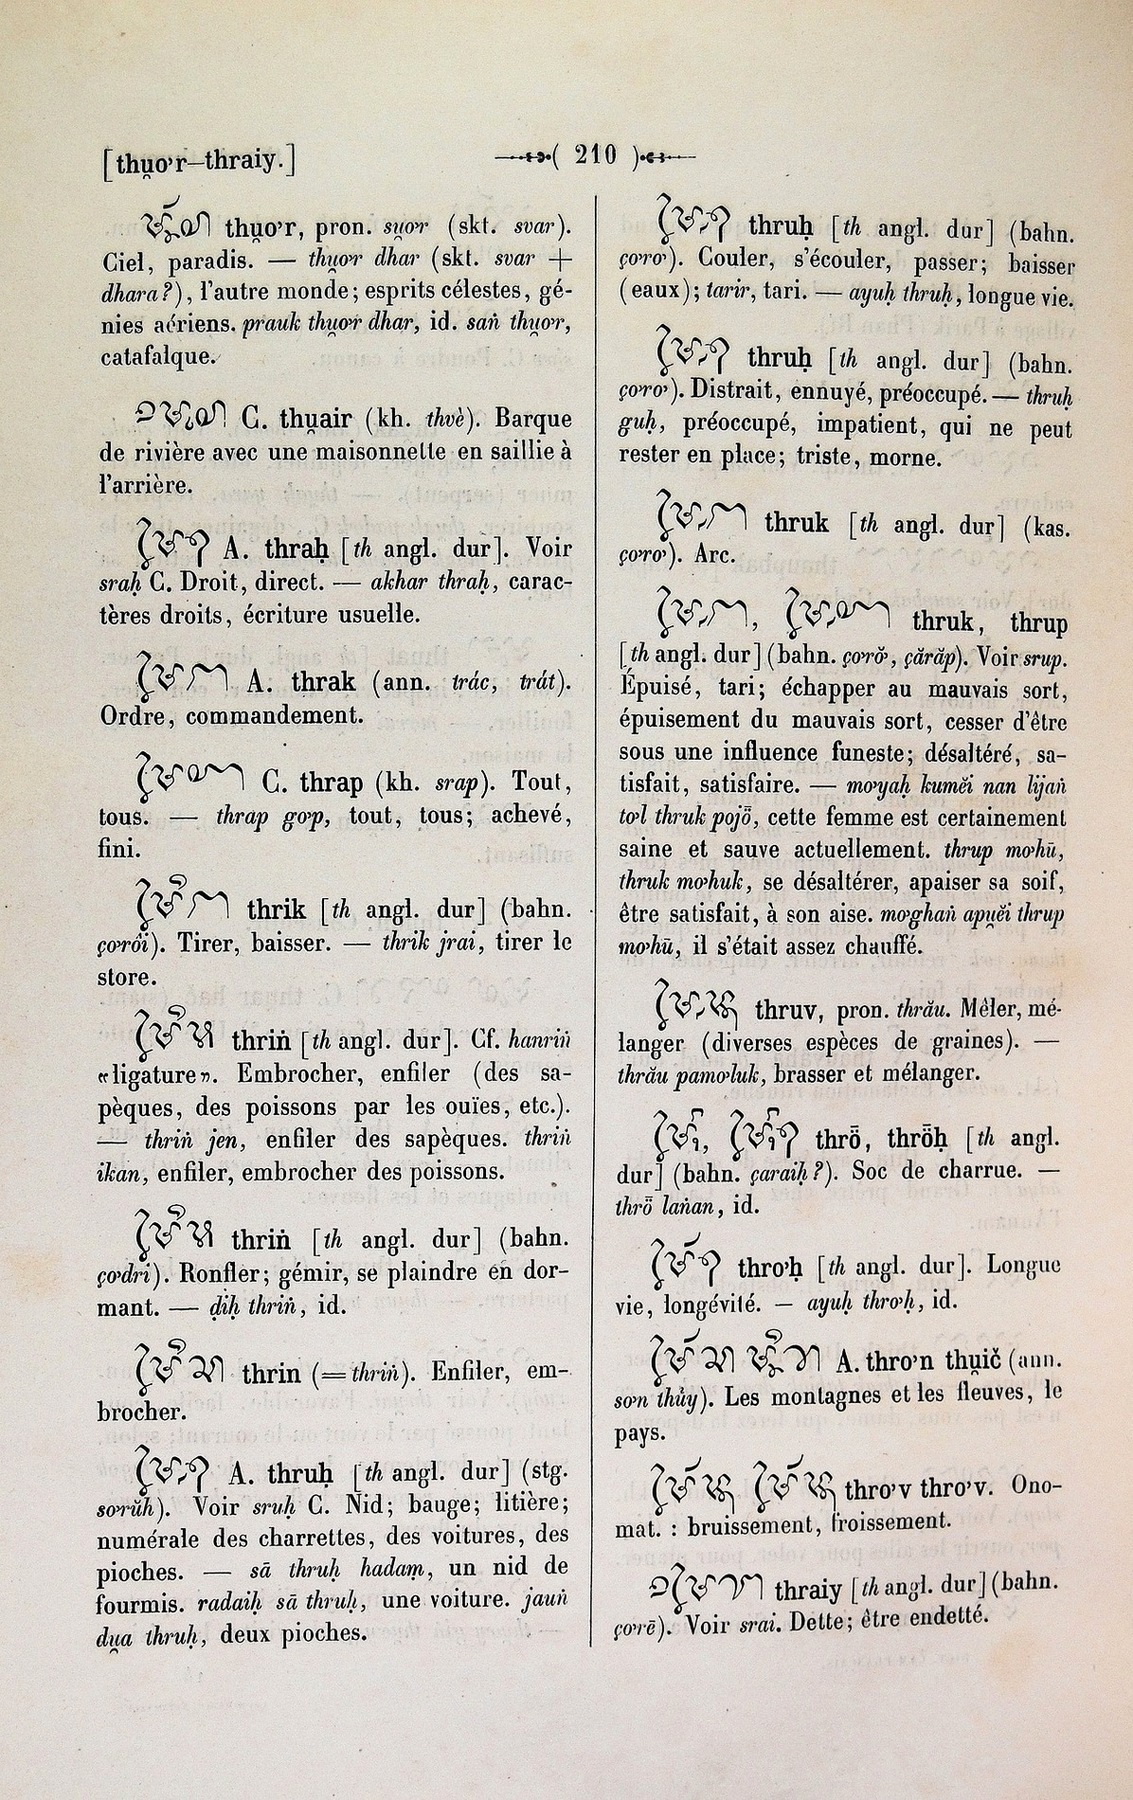 [thu̯o̓r–thraiy.]
( 210 )
thu̯o̓r, pron. su̯o̓r (skt. svar).
Ciel, paradis. — thu̯o̓r dhar (skt. svar +
dhara?), l'autre monde; esprits célestes, gé-
nies aériens. prauk thu̯o̓r dhar, id. sań thu̯o̓r,
catafalque.
C. thu̯air (kh. thvè). Barque
de rivière avec une maisonnette en saillie à
l'arrière.
A. thraḥ [th angl. dur]. Voir
sraḥ C. Droit, direct. — akhar thraḥ, carac-
tères droits, écriture usuelle.
A. thrak (ann. trác, trát).
Ordre, commandement.
C. thrap (kh. srap). Tout,
tous. — thrap go̓p, tout, tous; achevé,
fini.
thrik [th angl. dur] (bahn.
ço̓rôi). Tirer, baisser. — thrik jrai, tirer le
store.
thriṅ [th angl. dur]. Cf. hanriṅ
«ligature». Embrocher, enfiler (des sa-
pèques, des poissons par les ouïes, etc.).
— thriṅ jen, enfiler des sapèques. thriṅ
ikan, enfiler, embrocher des poissons.
thriṅ [th angl. dur] (bahn.
ço̓dri). Ronfler; gémir, se plaindre en dor-
mant. — ḍiḥ thriṅ, id.
thrin (= thriṅ). Enfiler, em-
brocher.
A. thruḥ [th angl. dur] (stg.
so̓rŭh). Voir sruḥ C. Nid; bauge; litière;
numérale des charrettes, des voitures, des
pioches. — sā thruḥ hadaṃ, un nid de
fourmis. radaiḥ sā thruḥ, une voiture. jauṅ
du̯a thruḥ, deux pioches.
thruḥ [th angl. dur] (bahn.
ço̓ro̓). Couler, s'écouler, passer; baisser
(eaux); tarir, tari. — ayuḥ thruḥ, longue vie.
thruḥ [th angl. dur] (bahn.
ço̓ro̓). Distrait, ennuyé, préoccupé. — thruḥ
guḥ, préoccupé, impatient, qui ne peut
rester en place; triste, morne.
thruk [th angl. dur] (kas.
ço̓ro̓). Arc.
thruk, thrup
[th angl. dur] (bahn. ço̓rŏ̓, çărăp). Voir srup.
Épuisé, tari; échapper au mauvais sort,
épuisement du mauvais sort, cesser d'être
sous une influence funeste; désaltéré, sa-
tisfait, satisfaire. — mo̓yaḥ kumĕi nan lijaṅ
to̓l thruk pajö̆, cette femme est certainement
saine et sauve actuellement. thrup mo̓hū,
thruk mo̓huk, se désaltérer, apaiser sa soif,
être satisfait, à son aise. mo̓ghaṅ apu̯ĕi thrup
mo̓hū, il s'était assez chauffé.
thruv, pron. thrău. Mêler, mé-
langer (diverses espèces de graines). —
thrău pamo̓luk, brasser et mélanger.
thrȫ, thrȫḥ [th angl.
dur] (bahn. çaraiḥ?). Soc de charrue. —
thrȫ laṅan, id.
thro̓ḥ [th angl. dur]. Longue
vie, longévité. — ayuḥ thro̓ḥ, id.
A. thro̓n thu̯ič (ann.
so̓n thủy). Les montagnes et les fleuves, le
pays.
thro̓v thro̓v. Ono-
mat. : bruissement, froissement.
thraiy [th angl. dur] (bahn.
ço̓rē). Voir srai. Dette; être endetté.